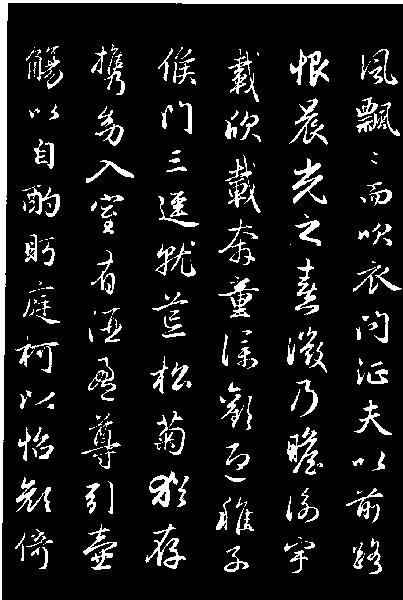 風飄〻而吹衣問征夫以前路
恨晨光之熹微乃瞻衡宇
載欣載奔童僕歡迎稚子
候門三逕就荒松菊猶存
携幼入室有酒盈尊引壺
觴以自酌眄庭柯以怡顏倚